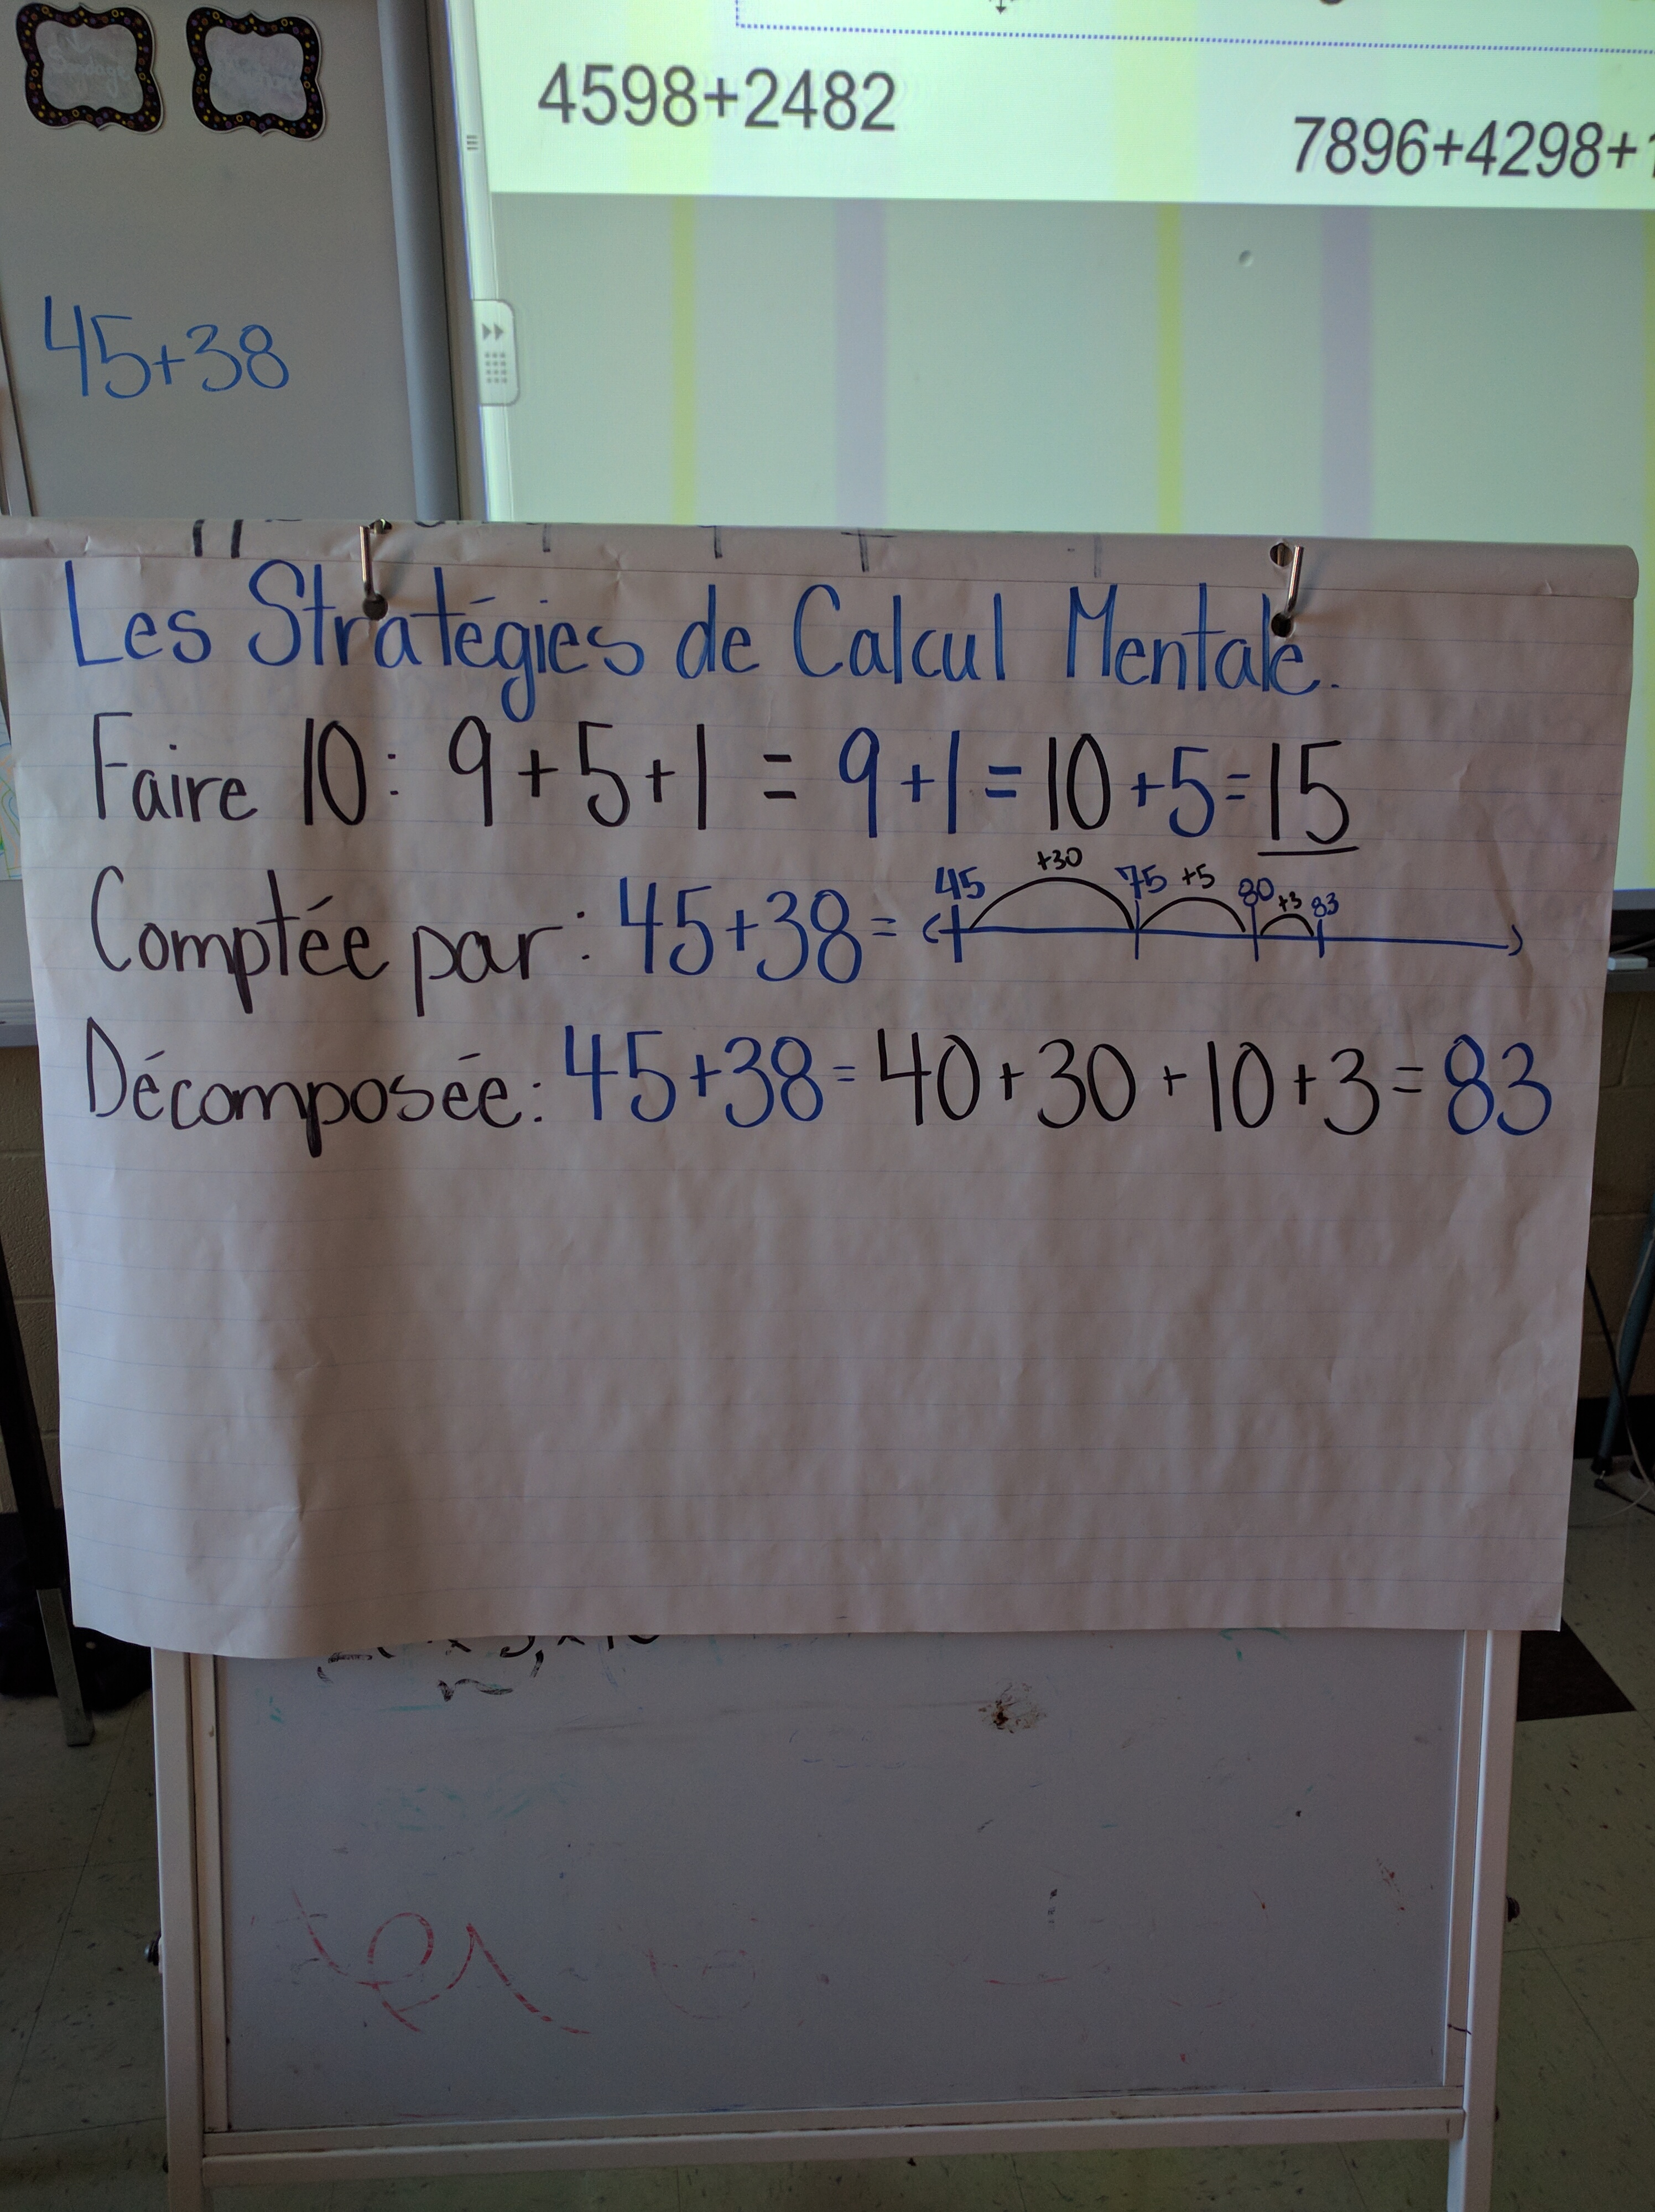 4598+2482
7896+4298+
45+38
Les Stratégies de Calcul Mentale.
Faire 10: 9+5+1 = 9+1=10+5=15
+30 +5 +3
45 75 80 83
Comptée par: 45+38=
Décomposée: 45+38=40+30+10+3=83